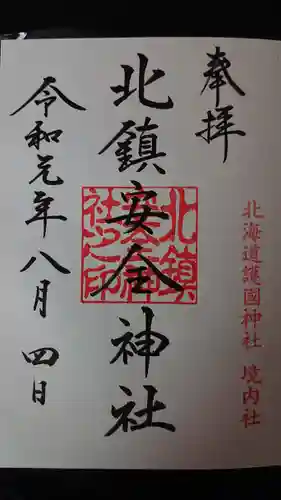 奉拝
北海道護國神社 境内社
北鎮安全神社
北鎮安全神社之印
令和元年八月四日